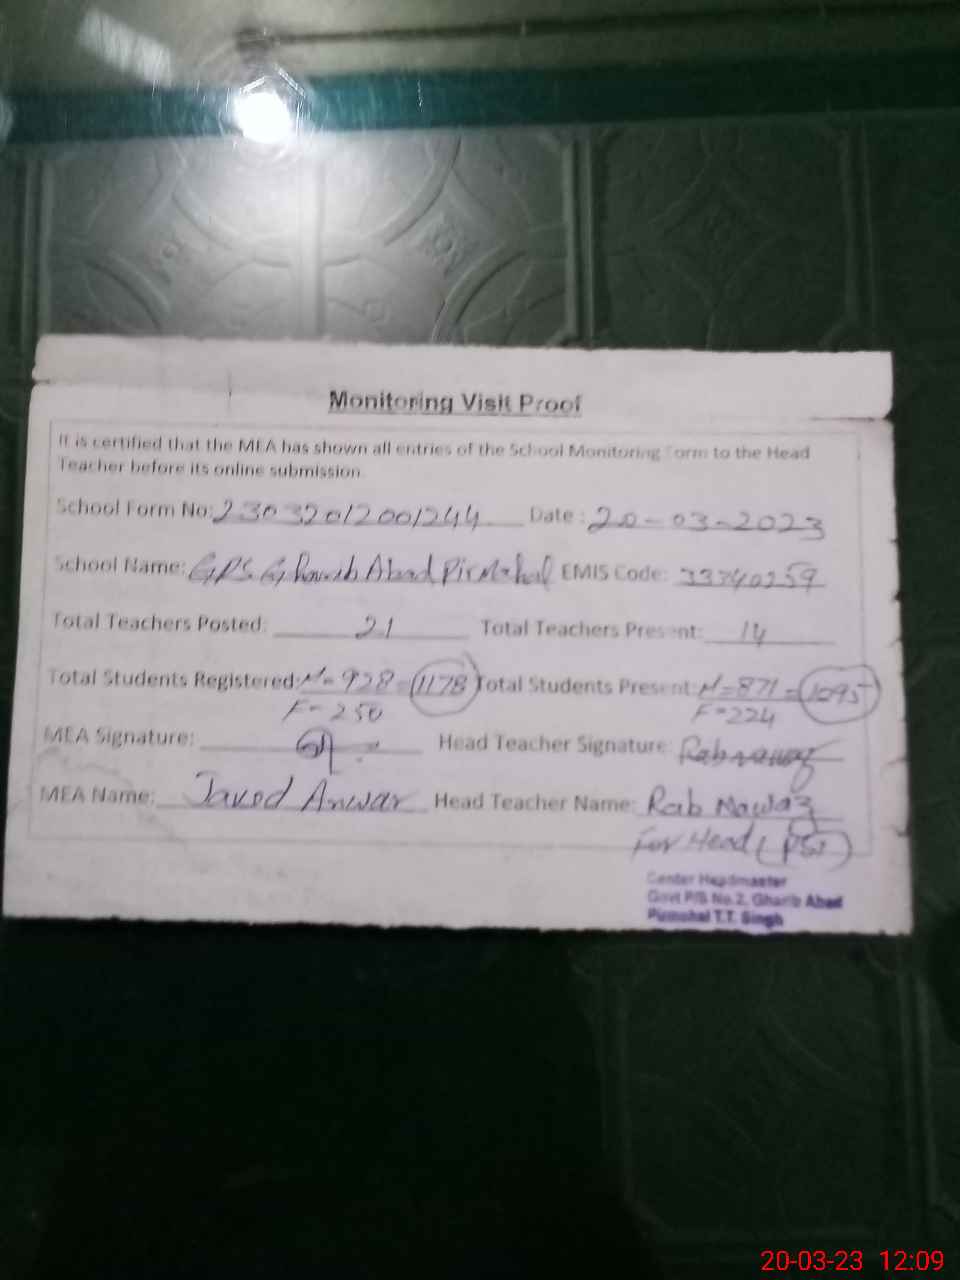 Monitoring Visit Proof
It is certified that the MEA has shown all entries of the School Monitoring Form to the Head
Teacher before its online submission.
School Form No: 23032012001244 Date : 20-03-2023
School Name: GPS Gharib Abad Pirmahal EMIS Code: 33340259
Total Teachers Posted: 21 Total Teachers Present: 14
Total Students Registered: M=928=1178 Total Students Present: M=871=1095
F=250 F=224
MEA Signature: Head Teacher Signature: Rabnawaz
MEA Name: Javed Anwar Head Teacher Name: Rab Nawaz
For Head (PST)
Center Headmaster
Govt P/S No.2, Gharib Abad
Pirmahal T.T. Singh
20-03-23 12:09